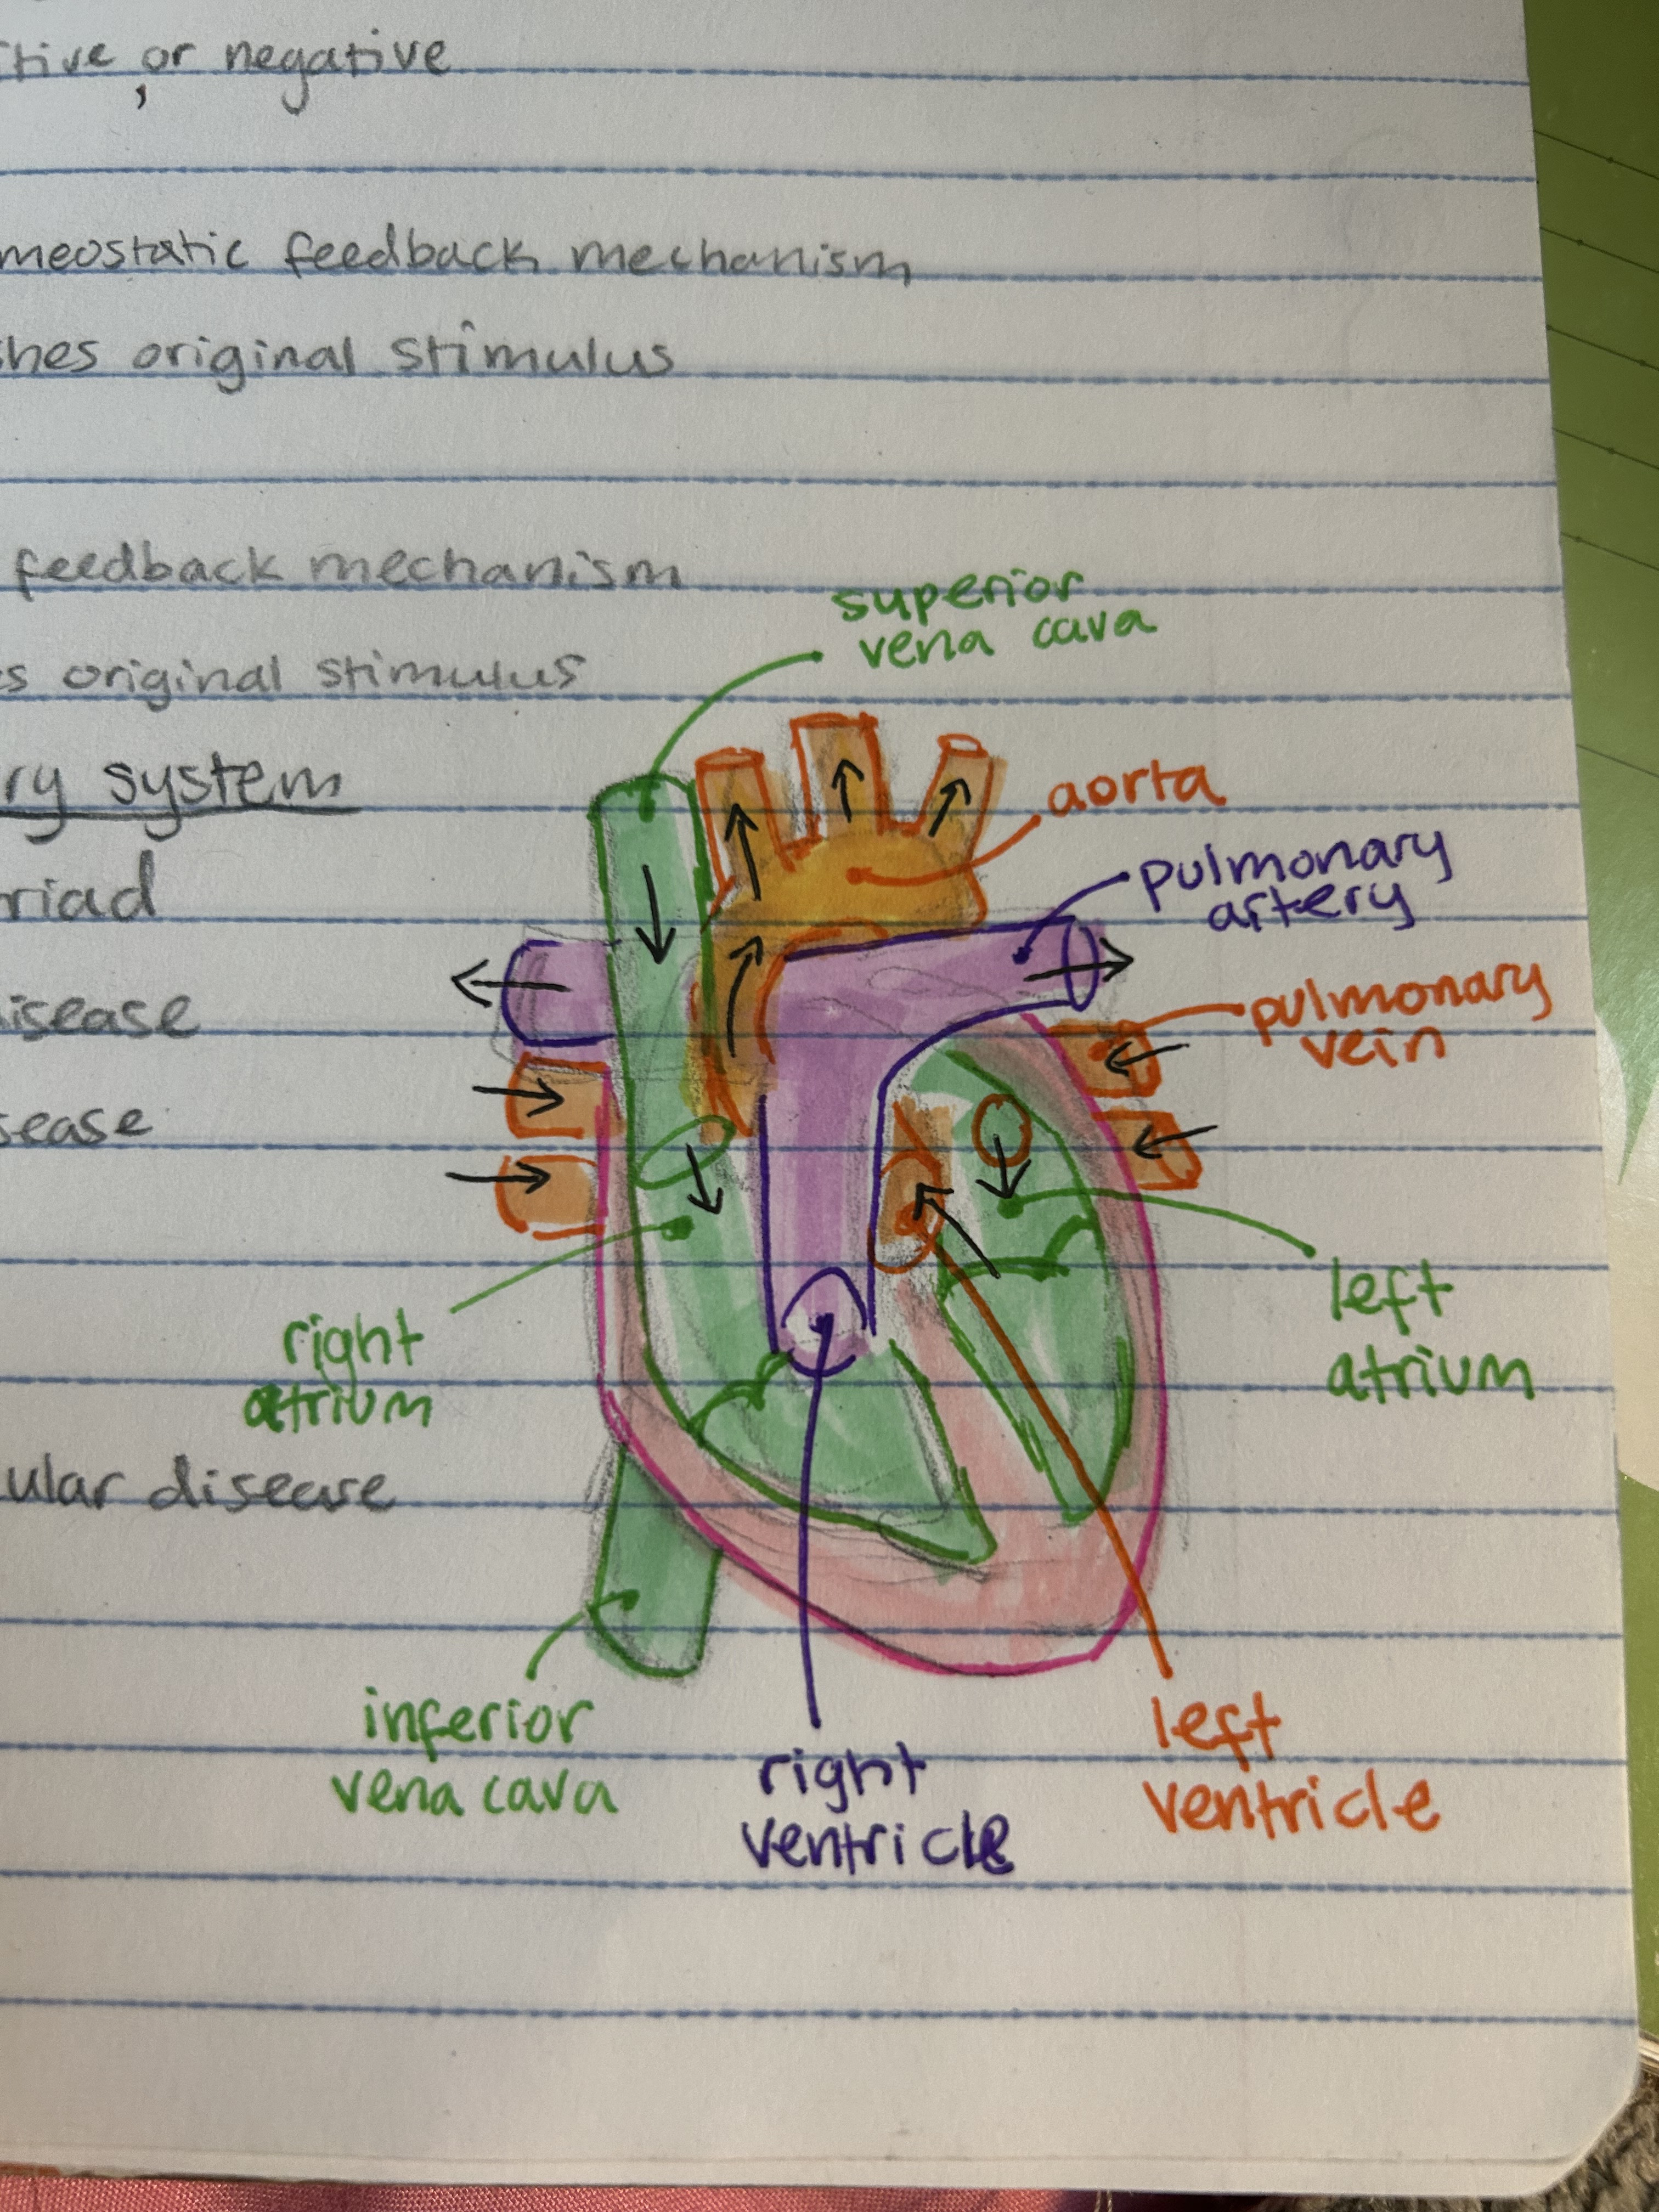 or negative
feedback mechanism
original stimulus
feedback mechanism
original stimulus
system
disease
superior
vena cava
aorta
pulmonary
artery
pulmonary
vein
left
atrium
right
atrium
inferior
vena cava
right
ventricle
left
ventricle